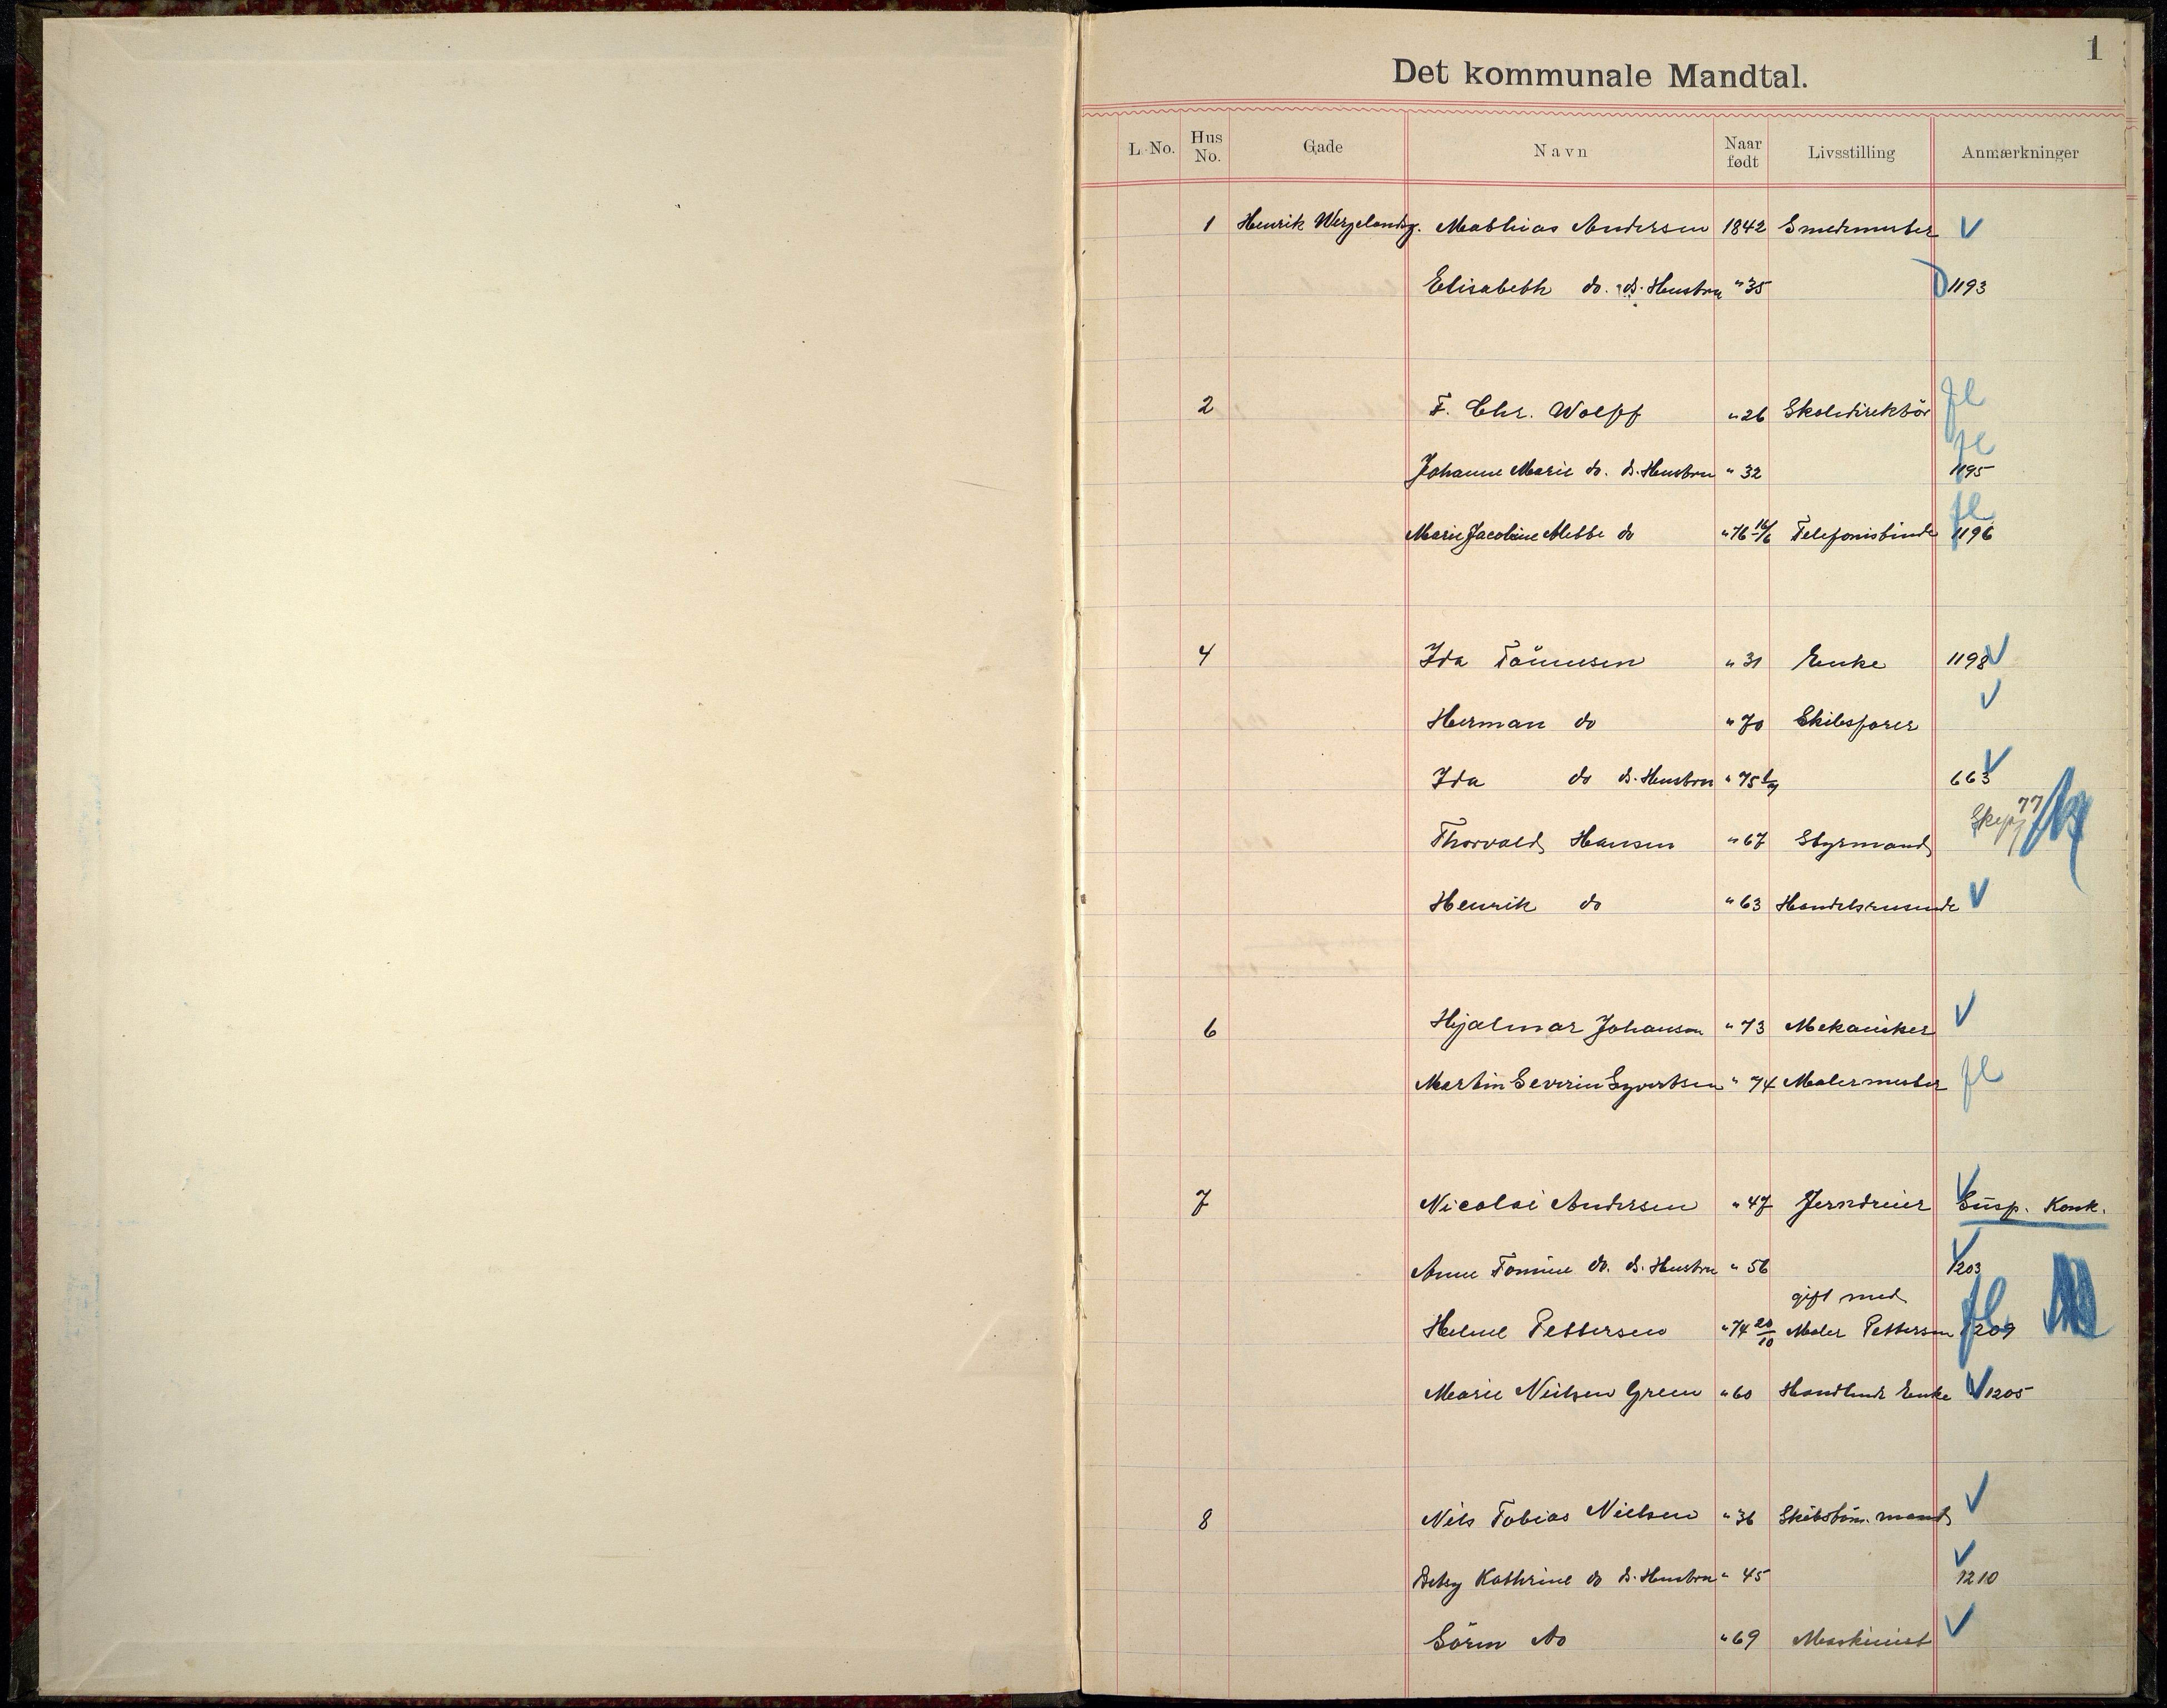 1
Det kommunale Mandtal.
L. No. Hus No. Gade Navn Naar født Livsstilling Anmærkninger
1 Henrik Wergelandsg. Mathias Andersen 1842 Smedmester V
Elisabeth do. d. Hustru " 35 1193
2 F. Chr. Wolff " 26 Skoledirektör fl
Johanne Marie do. d. Hustru " 32 fl 1195
Marie Jacobine Mebbe do " 76 16/6 Telefonistinde fl 1196
4 Ida Tönnesen " 31 Enke 1198 V
Herman do " 70 Skibsfører V
Ida do d. Hustru " 75 663 V
Thorvald Hansen " 67 Styrmand 77
Henrik do " 63 Handelsreisende V
6 Hjalmar Johansen " 73 Mekaniker V
Martin Severin Syvertsen " 74 Malermester fl
7 Nicolai Andersen " 47 Jerndreier V Susp. Konk.
Anne Tomine do. d. Hustru " 56 V 1203
gift med
Helene Pettersen " 74 20/10 Maler Pettersen fl 1209
Marie Nielsen Green " 60 Handlende Enke V 1205
8 Nils Tobias Nielsen " 36 Skibstöm.mand V
Betsy Kathrine do d. Hustru " 45 V 1210
Sörén do " 69 Maskinist V